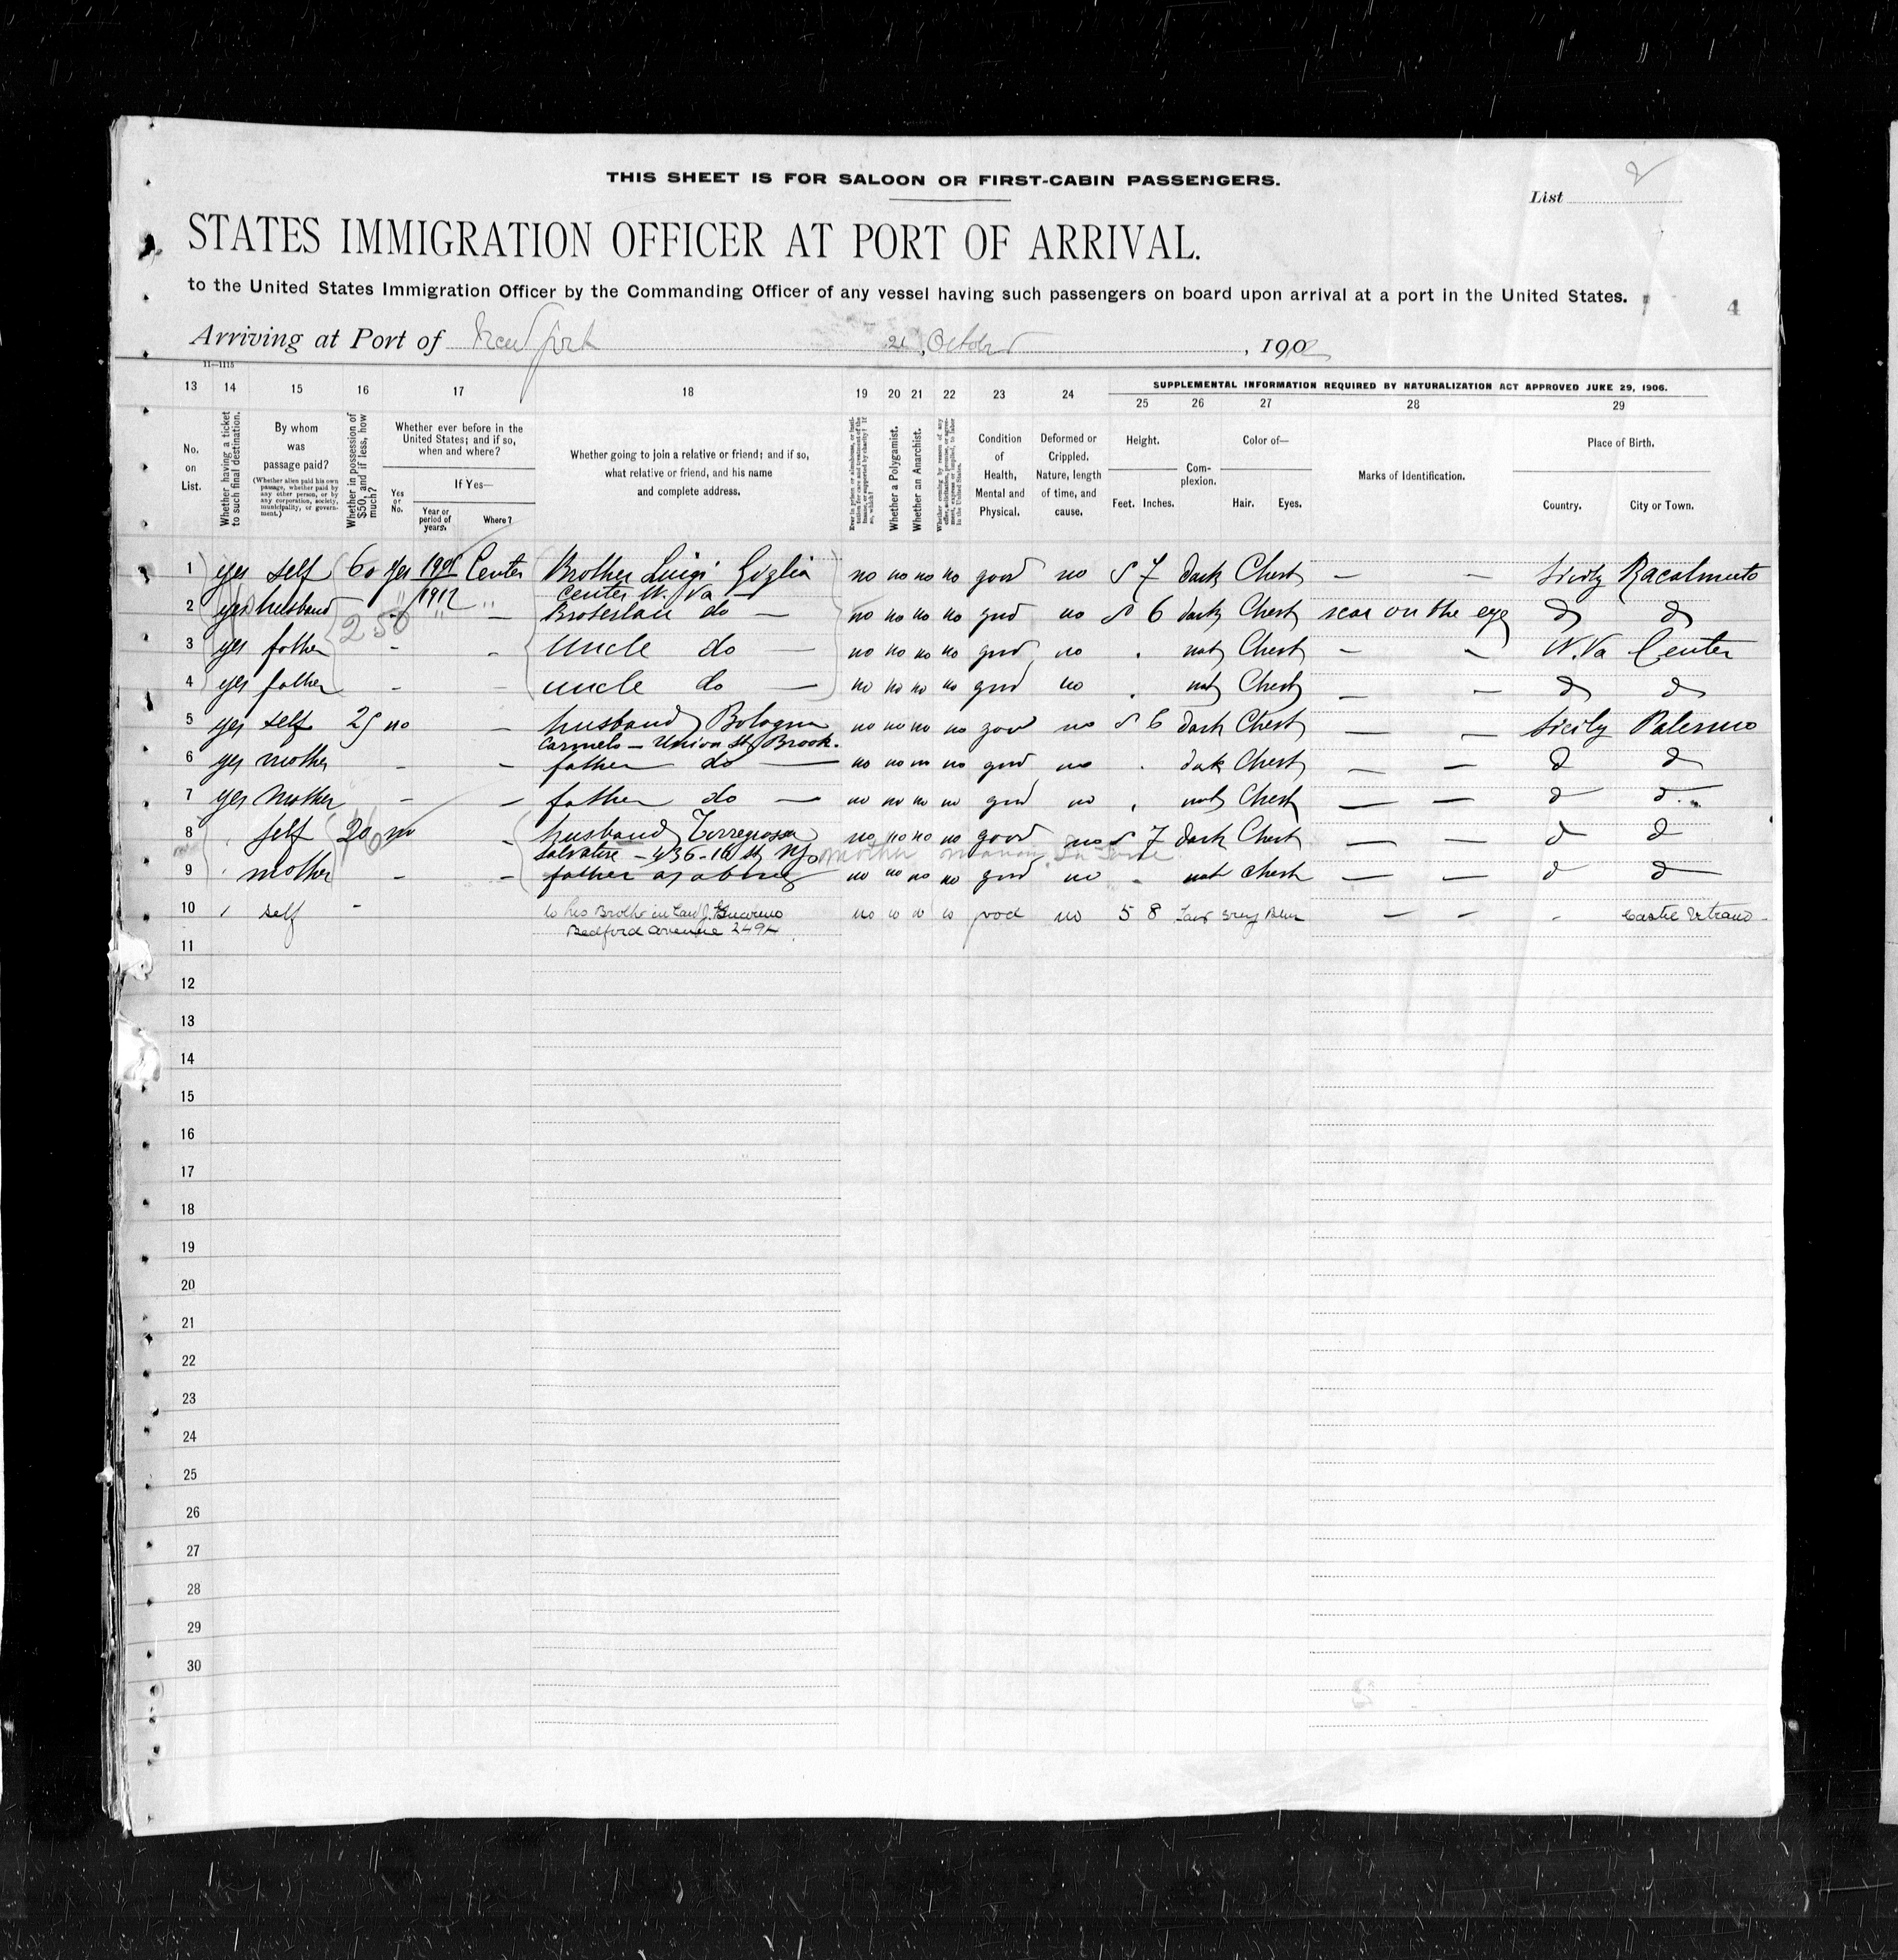 THIS SHEET IS FOR SALOON OR FIRST-CABIN PASSENGERS.
List
STATES IMMIGRATION OFFICER AT PORT OF ARRIVAL.
to the United States Immigration Officer by the Commanding Officer of any vessel having such passengers on board upon arrival at a port in the United States.
4
Arriving at Port of New York 21, October, 190
11—1115
SUPPLEMENTAL INFORMATION REQUIRED BY NATURALIZATION ACT APPROVED JUNE 29, 1906.
13 14 15 16 17 18 19 20 21 22 23 24 25 26 27 28 29
No. on List.
Whether having a ticket to such final destination.
By whom was passage paid?
(Whether alien paid his own passage, whether paid by any other person, or by any corporation, society, municipality, or government.)
Whether in possession of $50, and if less, how much?
Whether ever before in the United States; and if so, when and where?
Yes or No.
If Yes—
Year or period of years.
Where?
Whether going to join a relative or friend; and if so, what relative or friend, and his name and complete address.
Whether a Polygamist.
Whether an Anarchist.
Condition of Health, Mental and Physical.
Deformed or Crippled. Nature, length of time, and cause.
Height.
Feet. Inches.
Complexion.
Color of—
Hair. Eyes.
Marks of Identification.
Place of Birth.
Country. City or Town.
1 yes self 60 yes Center Brother Luigi no no no no good no 5 7 dark Chest — — Sicily Racalmuto
1912 Center W. Va —
2 yes husband " — do — no no no no good no 5 6 dark Chest scar on the eye d d
250
3 yes father - - Uncle do — no no no no good no . Chest — - W. Va Center
4 yes father - - uncle do — no no no no good no . Chest — — d d
5 yes self 25 no - husband Bologna no no no no good no 5 6 dark Chest — — Sicily Palermo
Carmelo — Union St Brook.
6 yes mother - - father do — no no no no good no . dark Chest — — d d
7 yes mother - - father do — no no no no good no . Chest — — d d
8 self 20 no - husband Torregrossa no no no no good no 5 7 dark Chest — — d d
Salvatore - 436 - 16 St NY mother
9 mother - - father as above no no no no good no - Chest — — d d
10 self - to his Brother in Law J. no no no no good no 5 8 Grey Blue — - -
Bedford avenue 249
11
12
13
14
15
16
17
18
19
20
21
22
23
24
25
26
27
28
29
30